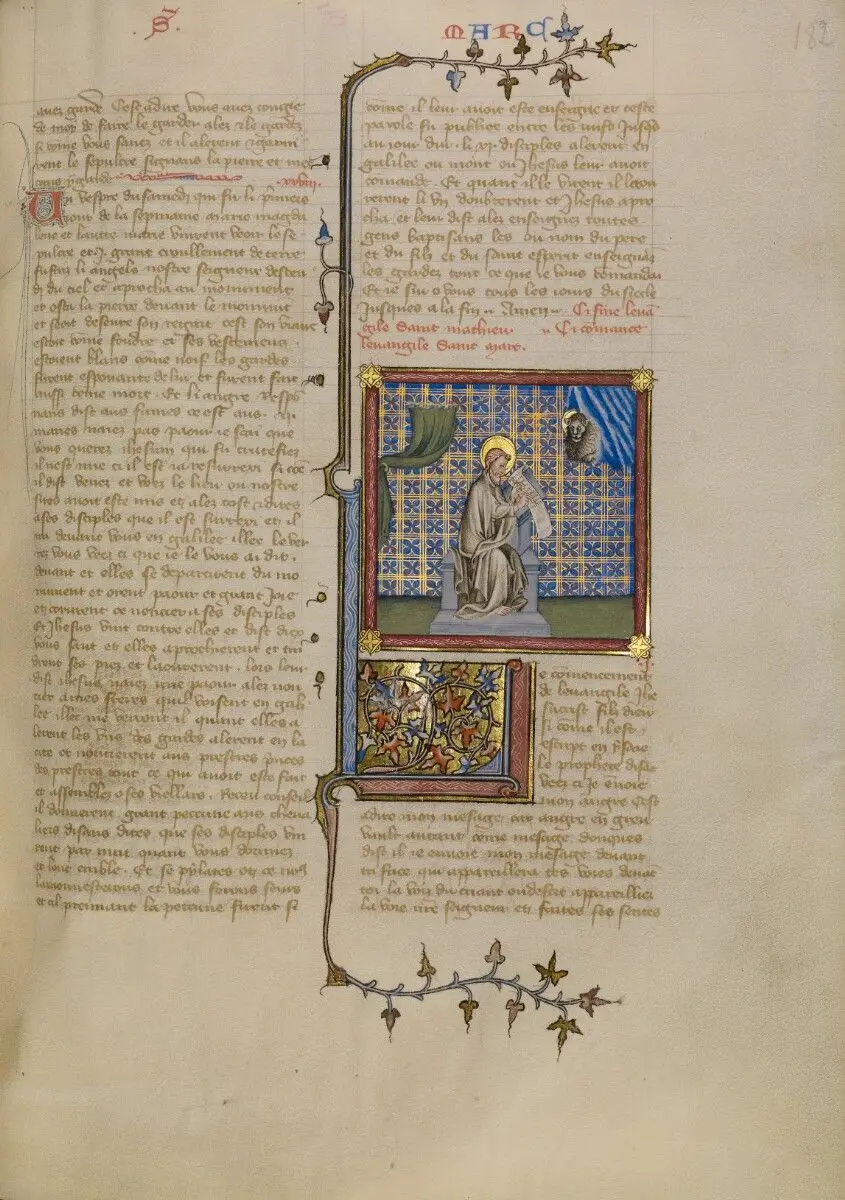 S.
MARC
182
auez garde Cest a dire vous auez congie
de moy de faire le garder alez et le gardez
si come vous sauez et il alerent et garni
rent le sepulcre signans la pierre et mec
xxviii.
Au vespre du samedi qui fu li primiers
iour de la sepmaine marie magda
lene et lautre marie vindrent veoir le se
pulcre et grant croullement de terre
fu fait li angels nostre seigneur descen
di du ciel et aprocha au monument
et osta la pierre deuant le monument
et seoit desus son regart cest son viaire
estoit come foudre et ses vestemens
estoient blans come noif les gardes
furent espouante de lui et furent fait
aussi come mort. Et li angre respo
nans dist aus fames ce est aus
maries naiez pas paour ie scai que
vous querez ihesum qui fu crucefiez
il nest mie ci il est ia resurrexi si come
il dist venez et veez le lieu ou nostre
sires auoit este mis et alez tost et dites
a ses disciples que il est surrexi et il
ira deuant vous en galilee illec le ver
rez vous veez ci que ie le vous ai dit
deuant et elles se departirent du mo
nument et orent paour et grant ioie
en corurent ce noncier a ses disciples
Et ihesus vint contre elles et dist diex
vous saut et elles aprochierent et tin
drent ses piez et laourerent. lors leur
dist ihesus naiez mie paour alez non
cier a mes freres quil voisent en gali
lee illec me verront il quant elles a
lerent les vns des gardes alerent en la
cite et noncierent aus prestres princes
des prestres tout ce qui auoit este fait
et assemblez o les viellars. Receu conseil
il donnerent grant peccune aus cheua
liers disans dites que ses disciples vin
rent par nuit quant vous dormiez
et lont emble. Et se pylates ot ce nous
lamonnesterons et vous ferons seurs
et il prennant la peccune furent si
come il leur auoit este enseigne et ceste
parole fu publiee entre les iuifs iusqs
au iour dui. li xi disciples alerent en
galilee ou mont ou ihesus leur auoit
comande. Et quant il le virent il laou
rerent li vn doubterent et ihesus apro
cha et leur dist alez enseignez toutes
gens baptisans les ou nom du pere
et du filz et du saint esperit enseignaz
les gardez tout ce que ie vous comandai
Et ie sui o vous tous les iours du siecle
iusques a la fin. Amen. Ci fine leuan
gile Saint mathieu. Ci comance
leuangile Saint Marc.
e comencement
de leuangile ihe
sucrist filz dieu
si come il est
escript en ysaie
le prophete disant
veez ci ie enuoie
mon angre cest
adire mon mesage car angre en greu
vault autant come mesage donques
dist il ie enuoie mon mesage deuant
ta face qui appareillera tes voies deuant
toi la voiz du criant ou desert appareilliez
la voie nostre seigneur et faites ses sentes